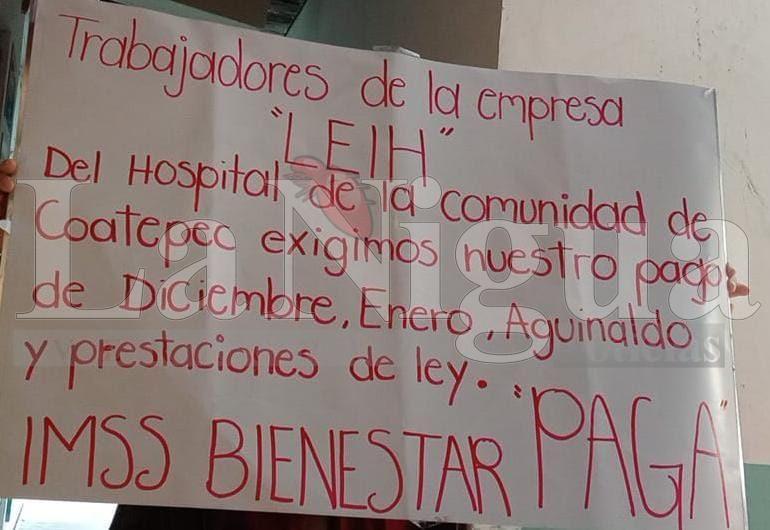 Trabajadores de la empresa
"LEIH"
Del Hospital de la comunidad de
Coatepec exigimos nuestro pago
de Diciembre, Enero, Aguinaldo
y prestaciones de ley. "PAGA"
IMSS BIENESTAR
La Nigua